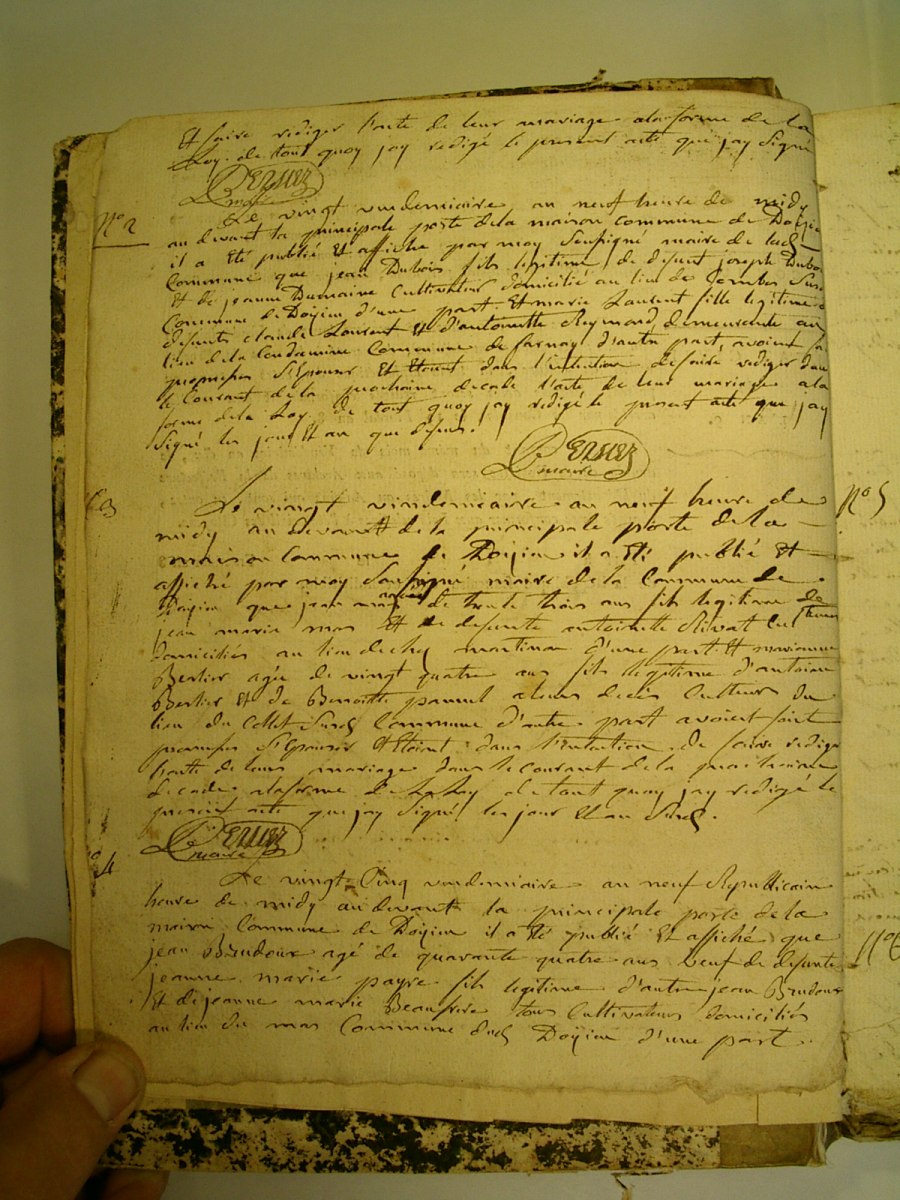 Et faire rediger l'acte de leur mariage a la forme de la
Loy. de tout quoy jay redigé le present acte que jay Signé
Dezuez
maire
N° 2
Le vingt vindemiaire an neuf heure de midy
au devant la principale porte de la maison commune de Doizieu
il a Eté publié Et affiché par moy Sousigné maire de lad
Commune que jean Dubois fils legitime de defunt joseph Dubois
Et de jeanne Dumaine Cultivateur domicilié au lieu de
Commune de Doizieu d'une part Et marie Laurent fille legitime a
defunts claude Laurent Et d'antoinette Reymond demeurante au
lieu de la Condamine Commune de farnay d'autre part, avoient fa
promesses S'Epouser Et Etoient dans l'intention de faire rediger dans
le Courant de la prochaine decade l'acte de leur mariage a la
forme de la Loy de tout quoy jay redigé le present acte que jay
Signé les jour Et an que dessus.
Dezuez
maire
3
Le vingt vindemeaire an neuf heure de
midy au devant de la principale porte de la
maison Commune de Doizieu il a Eté publié Et
affiché par moy Sousigné maire de la Commune de
Doizieu que jean mas agé de trente trois ans fils legitime de
jean marie mas Et de defunte antoinette Rivat
domiciliés au lieu de chez martinau d'une part Et marianne
Bertier agée de vingt quatre ans legitime d'antoine
Bertier Et de Benoitte Cultteurs du
lieu du Collet Commune d'autre part avoient fait
promesses S'Epouser Et Etoient dans l'intention de faire rediger
l'acte de leur mariage dans le courant de la prochaine
decade a la forme de la Loy de tout quoy jay redigé le
present acte que jay Signé les jour Et an Susd.
Dezuez
maire
N° 5
4
Le vingt Cinq vendemiaire an neuf Republicain
heure de midy au devant la principale porte de la
maison Commune de Doizieu il a Eté publié Et affiché que
jean Baudoux agé de quarante quatre ans veuf de defunte
jeanne marie payre fils legitime d'autre jean Baudoux
Et de jeanne marie Beaufrere tous Cultivateurs domiciliés
au lieu du mas Commune dud Doizieu d'une part
N° 6